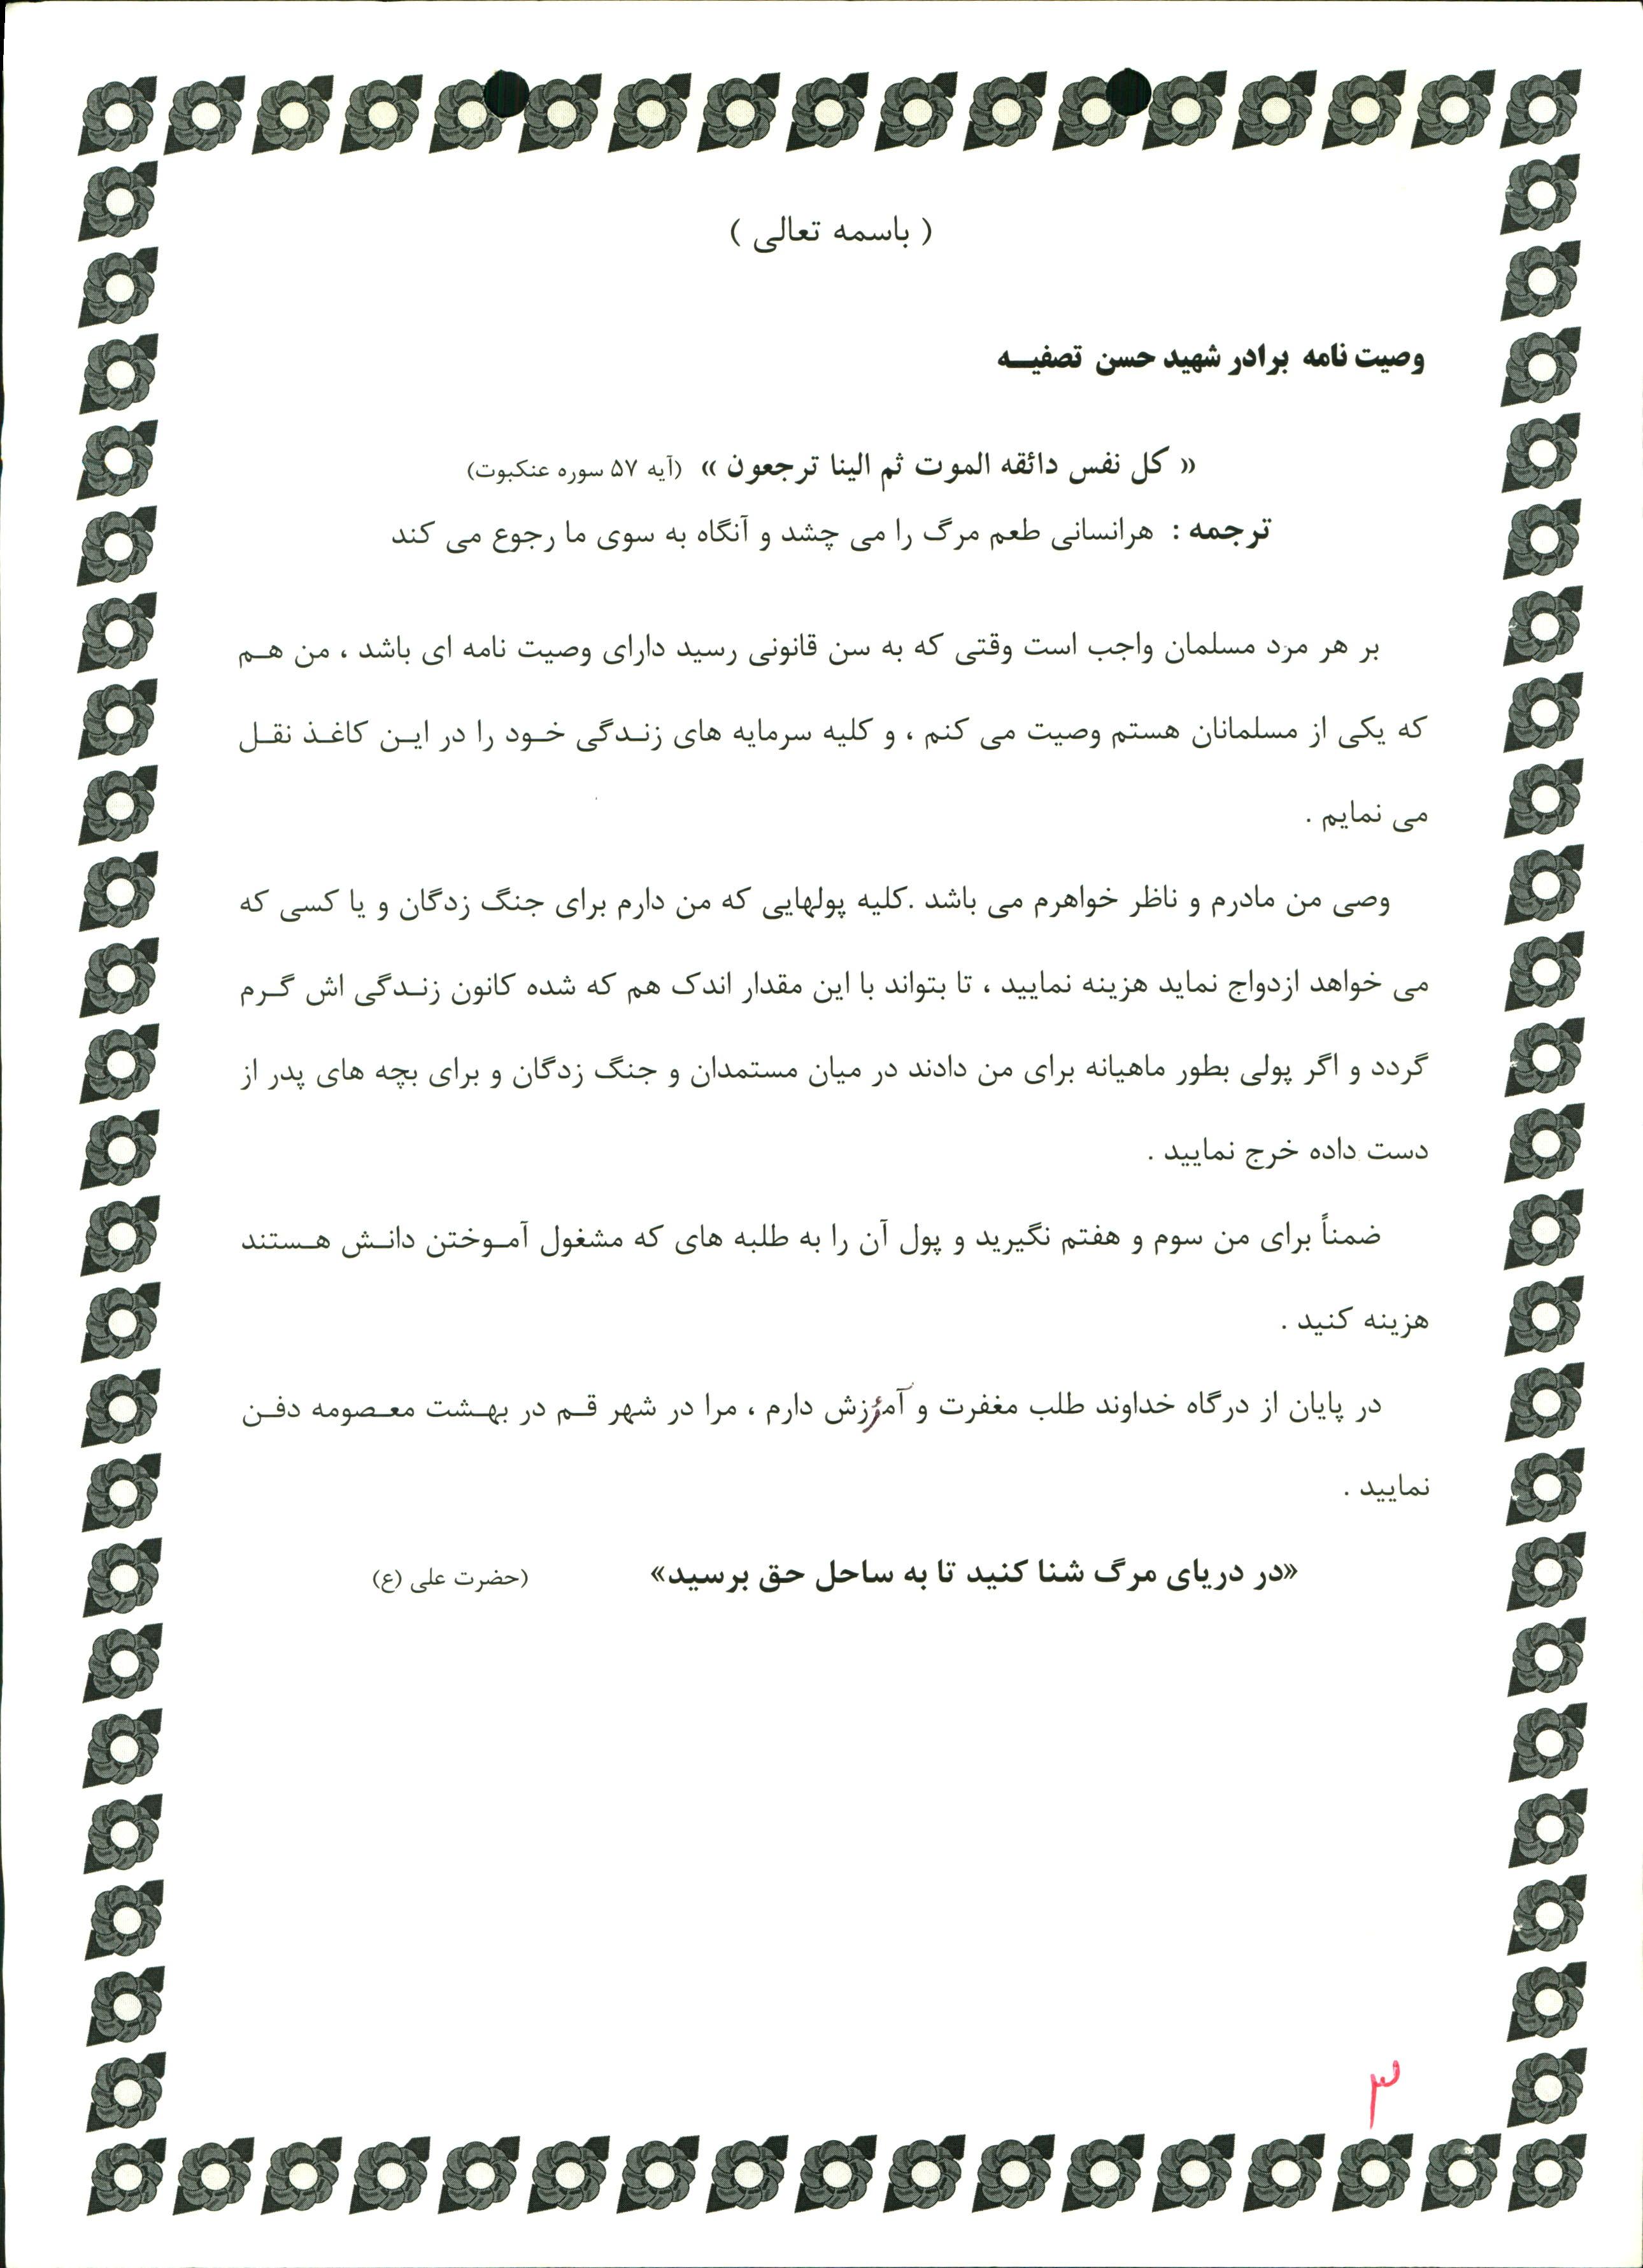 ( باسمه تعالی )
وصیت نامه برادر شهید حسن تصفیــه
« کل نفس دائقه الموت ثم الینا ترجعون » (آیه ۵۷ سوره عنکبوت)
ترجمه : هرانسانی طعم مرگ را می چشد و آنگاه به سوی ما رجوع می کند
بر هر مرد مسلمان واجب است وقتی که به سن قانونی رسید دارای وصیت نامه ای باشد ، من هـم
که یکی از مسلمانان هستم وصیت می کنم ، و کلیه سرمایه های زنـدگی خـود را در ایـن کاغـذ نقـل
می نمایم .
وصی من مادرم و ناظر خواهرم می باشد .کلیه پولهایی که من دارم برای جنگ زدگان و یا کسی که
می خواهد ازدواج نماید هزینه نمایید ، تا بتواند با این مقدار اندک هم که شده کانون زنـدگی اش گـرم
گردد و اگر پولی بطور ماهیانه برای من دادند در میان مستمدان و جنگ زدگان و برای بچه های پدر از
دست داده خرج نمایید .
ضمناً برای من سوم و هفتم نگیرید و پول آن را به طلبه های که مشغول آمـوختن دانـش هـستند
هزینه کنید .
در پایان از درگاه خداوند طلب مغفرت و آمرزش دارم ، مرا در شهر قـم در بهـشت معـصومه دفـن
نمایید .
«در دریای مرگ شنا کنید تا به ساحل حق برسید» (حضرت علی (ع)
۳